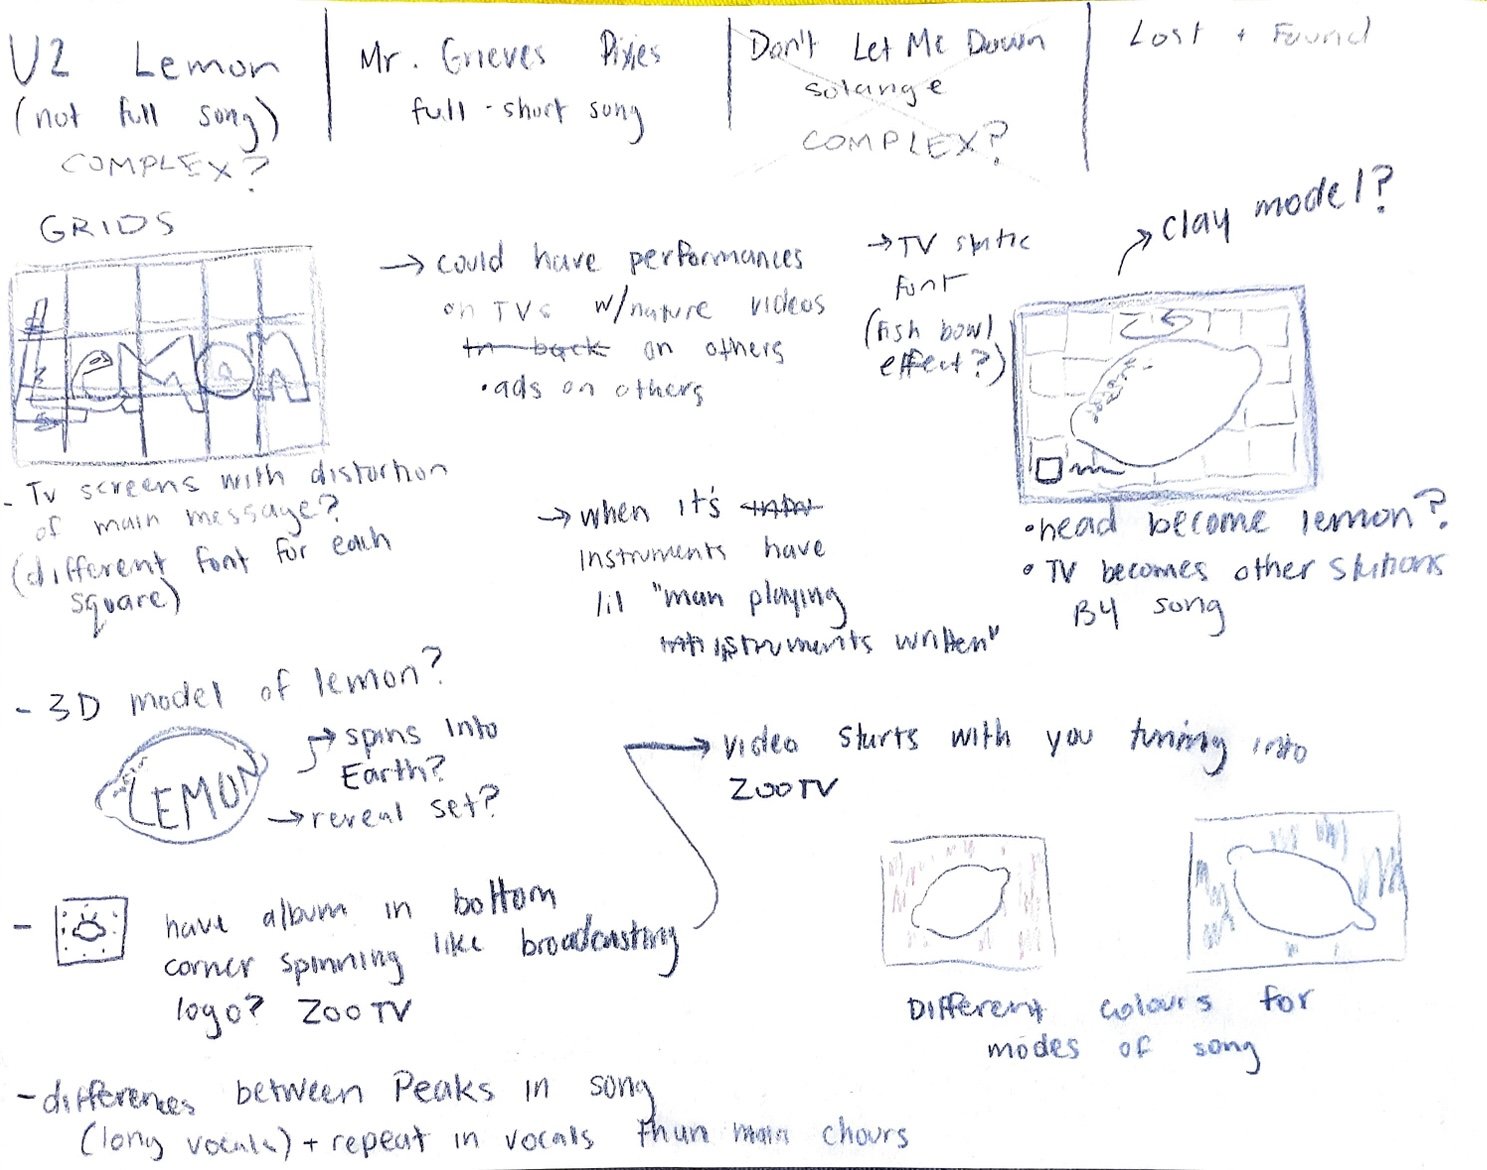 U2 Lemon
(not full song)
COMPLEX?
Mr. Grieves Pixies
full - short song
Don't Let Me Down
solange
COMPLEX?
Lost + Found
GRIDS
LEMON
→ could have performances
on TVs w/nature videos
in back on others
• ads on others
→ TV static
font
(fish bowl
effect?)
→ clay model?
- TV screens with distortion
of main message?
(different font for each
square)
→ when it's intr
instruments have
lil "man playing
instruments written"
• head become lemon?
• TV becomes other stations
B4 song
- 3D model of lemon?
LEMON
→ spins into
Earth?
→ reveal set?
→ video starts with you tuning into
ZOOTV
- have album in bottom
corner spinning like broadcasting
logo? ZOOTV
Different colours for
modes of song
- differences between Peaks in song
(long vocals) + repeat in vocals thun main chours